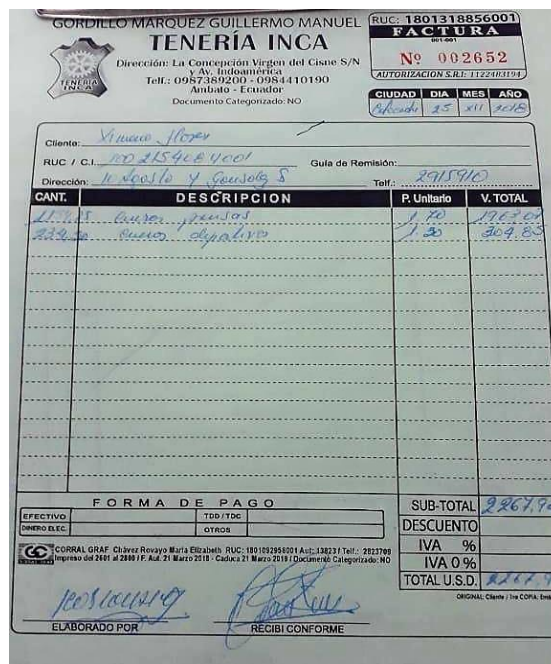 GORDILLO MARQUEZ GUILLERMO MANUEL
TENERÍA INCA
TENERIA INCA
Dirección: La Concepción Virgen del Cisne S/N
y Av. Indoamérica
Telf.: 0987389200 - 0984410190
Ambato - Ecuador
Documento Categorizado: NO
RUC: 1801318856001
FACTURA
001-001
Nº 002652
AUTORIZACION S.R.I: 1122403194
CIUDAD DIA MES AÑO
25 XII 2018
Cliente: Ximena Flores
RUC / C.I. Guía de Remisión:
Dirección: 10 Agosto y Telf.: 2915910
CANT. DESCRIPCION P. Unitario V. TOTAL
cueros 1.70
cueros deportivo 1.30 304.85
FORMA DE PAGO
EFECTIVO TDD / TDC
DINERO ELEC. OTROS
SUB-TOTAL 2267.9
DESCUENTO
IVA %
IVA 0 %
TOTAL U.S.D.
CORRAL GRAF Chávez Rovayo María Elizabeth RUC: 1801092956001 Aut: 13823 / Telf.: 2823709
Impreso del 2601 al 2800 / F. Aut. 21 Marzo 2018 - Caduca 21 Marzo 2019 / Documento Categorizado: NO
ORIGINAL: Cliente / 1ra COPIA:
ELABORADO POR RECIBI CONFORME